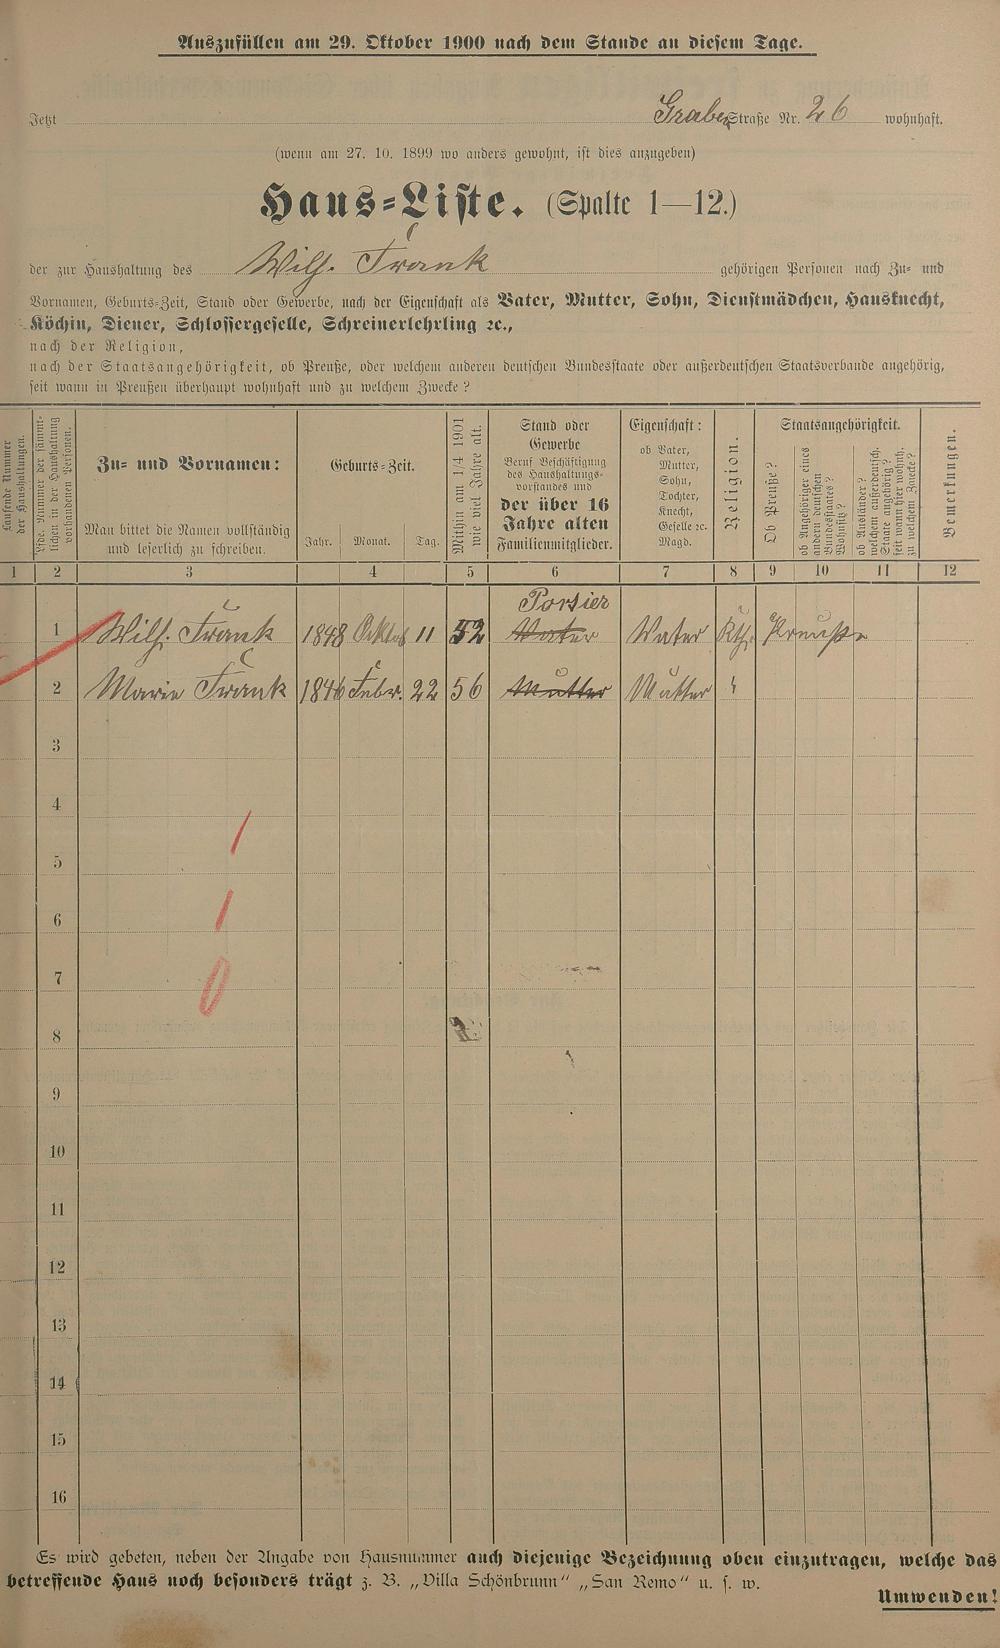 Auszufüllen am 29. Oktober 1900 nach dem Stande an diesem Tage.
Jetzt Graben Straße Nr. 26 wohnhaft.
(wenn am 27. 10. 1899 wo anders gewohnt, ist dies anzugeben)
Haus-Liste. (Spalte 1—12.)
der zur Haushaltung des Wilh. Frank gehörigen Personen nach Zu- und
Vornamen, Geburts-Zeit, Stand oder Gewerbe, nach der Eigenschaft als Vater, Mutter, Sohn, Dienstmädchen, Hausknecht,
Köchin, Diener, Schlossergeselle, Schreinerlehrling ꝛc.,
nach der Religion,
nach der Staatsangehörigkeit, ob Preuße, oder welchem anderen deutschen Bundesstaate oder außerdeutschen Staatsverbande angehörig,
seit wann in Preußen überhaupt wohnhaft und zu welchem Zwecke?
Laufende Nummer
der Haushaltungen.
Lfde. Nummer der sämmt-
lichen in der Haushaltung
vorhandenen Personen.
Zu- und Vornamen:
Man bittet die Namen vollständig
und leserlich zu schreiben.
Geburts-Zeit.
Jahr. Monat. Tag.
Mithin am 1/4 1901
wie viel Jahre alt.
Stand oder
Gewerbe
Beruf Beschäftigung
des Haushaltungs-
vorstandes und
der über 16
Jahre alten
Familienmitglieder.
Eigenschaft:
ob Vater,
Mutter,
Sohn,
Tochter,
Knecht,
Geselle ꝛc.
Magd.
Religion.
Staatsangehörigkeit.
Ob Preuße?
ob Angehöriger eines
andern deutschen
Bundesstaates?
Wohnsitz?
ob Ausländer?
welchem außerdeutsch.
Staate angehörig?
seit wann hier wohnh.
zu welchem Zwecke?
Bemerkungen.
1 2 3 4 5 6 7 8 9 10 11 12
Portier
1 Wilh. Frank 1848 Oktob 11 52 Vater Vater Kth. Preuße
2 Marie Frank 1846 Febr. 22 56 Mutter Mutter "
3
4
5
6
7
8
9
10
11
12
13
14
15
16
Es wird gebeten, neben der Angabe von Hausnummer auch diejenige Bezeichnung oben einzutragen, welche das
betreffende Haus noch besonders trägt z. B. „Villa Schönbrunn“ „San Remo“ u. s. w.
Umwenden!